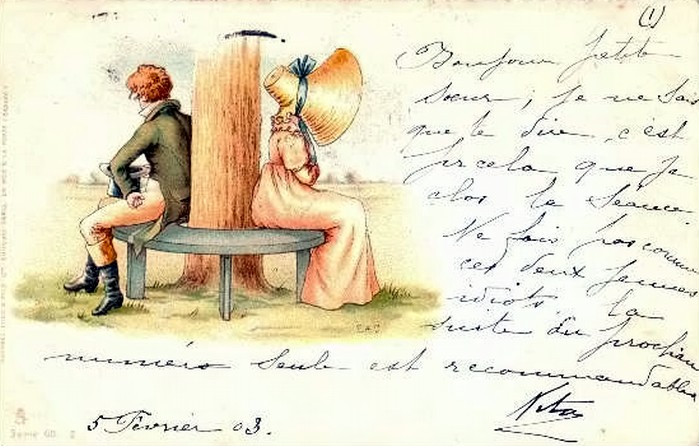 (1)
Bonjour petite
sœur ; je ne sais
que te dire, c'est
prcela que je
clos la séance.
Ne fais pas comme
ces deux jeunes
idiots, la
suite du prochain
numéro seule est recommandable
5 Février 03.
Serie 60. 2